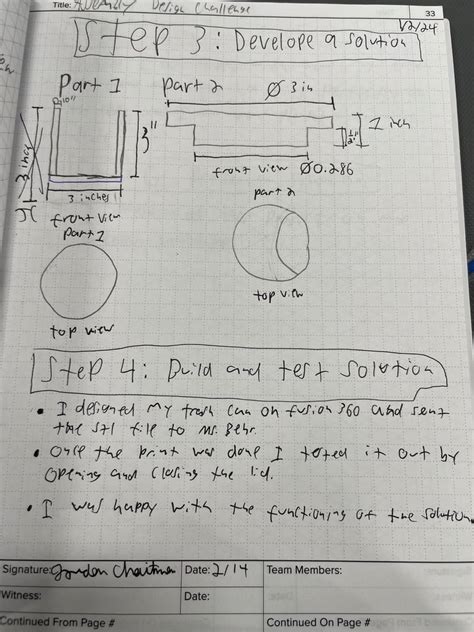 Title: Assembly Design Challenge
33
1/2/24
Step 3: Develope a solution
Part 1
Part 2
Ø 3 in
0.10"
3 inches
3"
1 inch
1/2"
3 inches
front view
Part 1
front view Ø0.286
part 2
top view
top view
Step 4: Build and test solution
• I designed my trash can on fusion 360 and sent
the stl file to Ms. Behr.
• Once the print was done I tested it out by
opening and closing the lid.
• I was happy with the functioning of the solution.
Signature:
Date: 2/14
Team Members:
Witness:
Date:
Continued From Page #
Continued On Page #